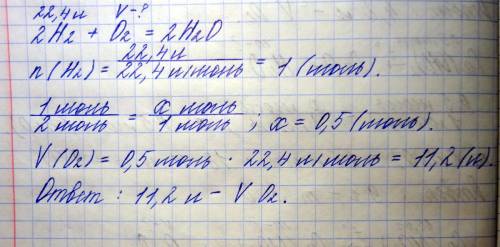 22,4 л V-?
2H2 + O2 = 2H2O
n(H2) = 22,4 л / 22,4 л/моль = 1 (моль).
1 моль / 2 моль = x моль / 1 моль ; x = 0,5 (моль).
V(O2) = 0,5 моль · 22,4 л/моль = 11,2 (л).
Ответ : 11,2 л - V O2.